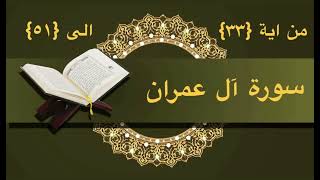 من اية {٣٣} الى {٥١}
سورة آل عمران